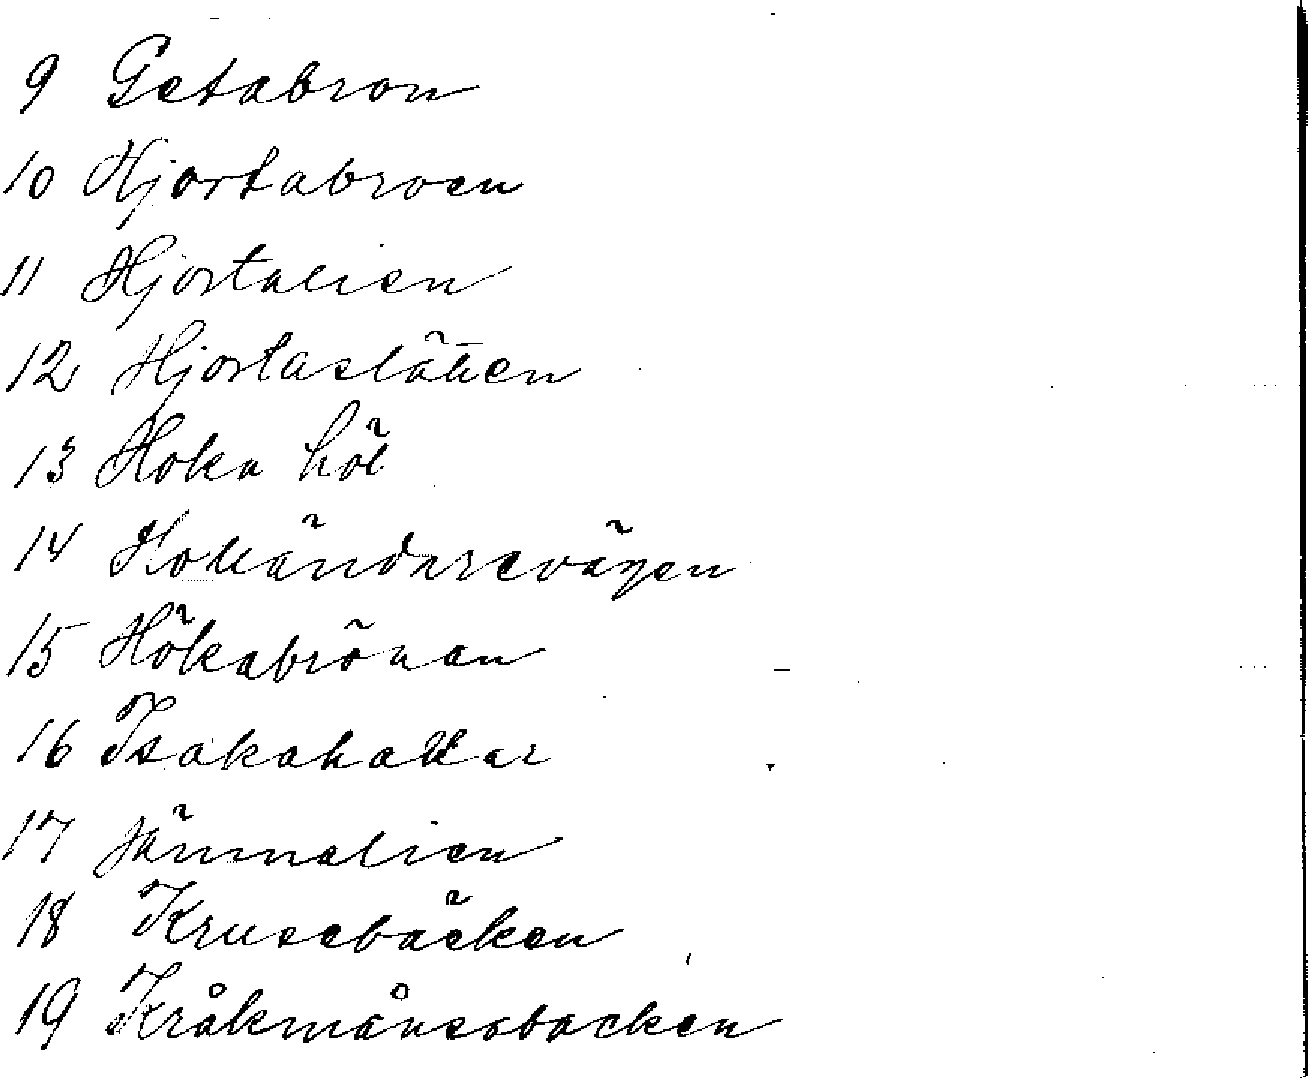 9 Getabron
10 Hjortabroen
11 Hjortalien
12 Hjortaslätten
13 Hoka höl
14 Holländarevägen
15 Hökabrönan
16 Isakahallar
17 Jämmalien
18 Krusebäcken
19 Kråkmånsabacken